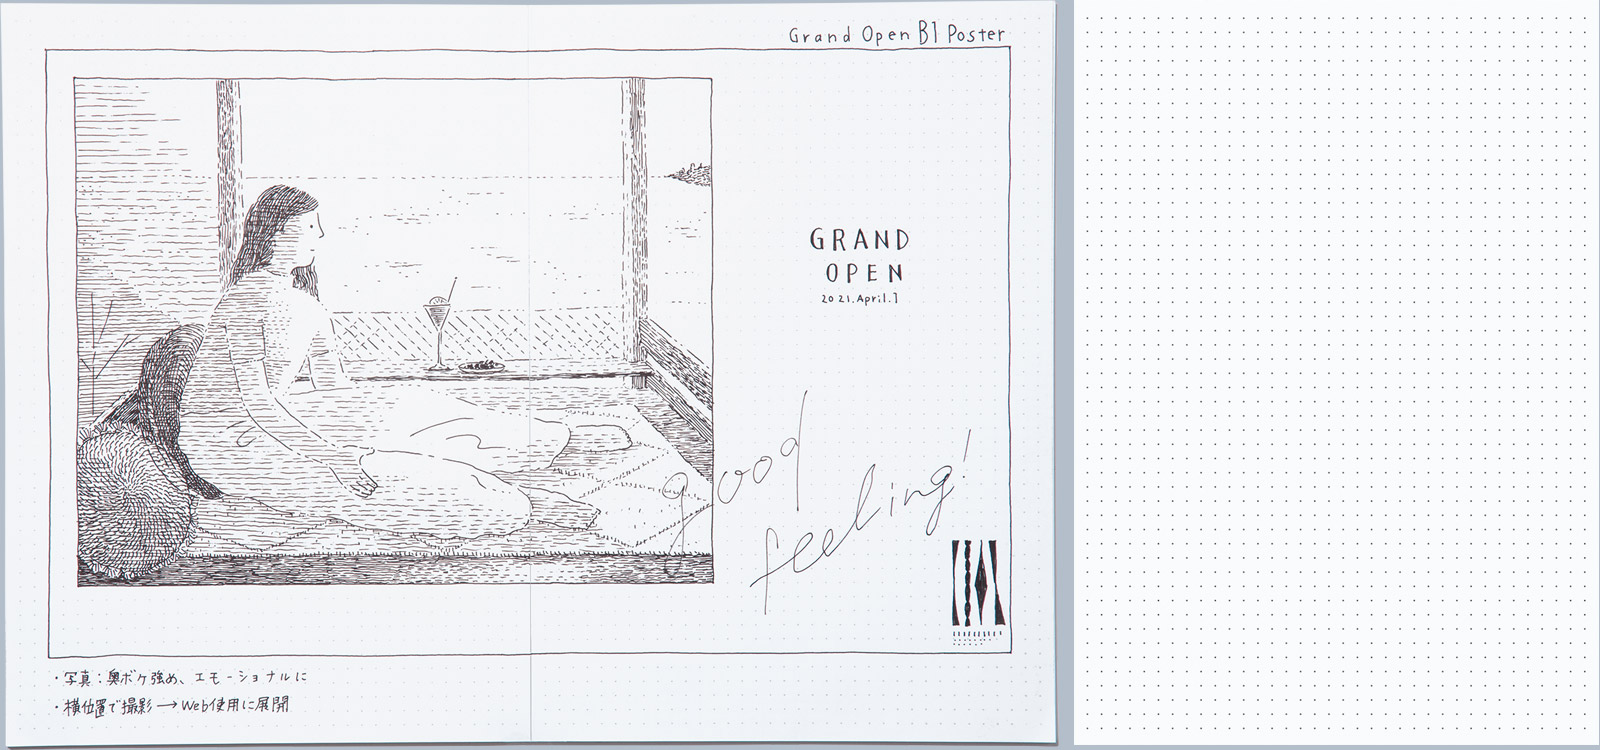 Grand Open B1 Poster
GRAND
OPEN
2021.April.1
good
feeling!
・写真：奥ボケ強め、エモーショナルに
・横位置で撮影→Web使用に展開